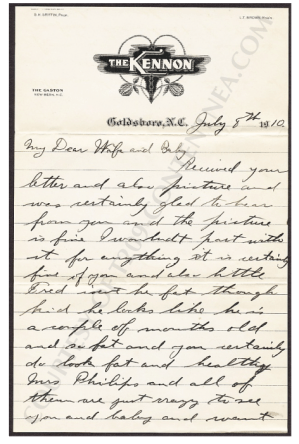 THE KENNON
THE GASTON
NEW BERN, N.C.
Goldsboro, N.C. July 8th 1910.
My Dear Wife and Baby
Recived your
letter and also picture and
was certainly glad to hear
from you and the picture
is fine I wouldt part with
it for anything it is certainly
fine of you and also little
Fred isnt he fat though
he looks like he is
a couple of months old
and so fat and you certainly
do look fat and healthy
Mrs Philips and all of
them are just crazy to see
you and baby and want